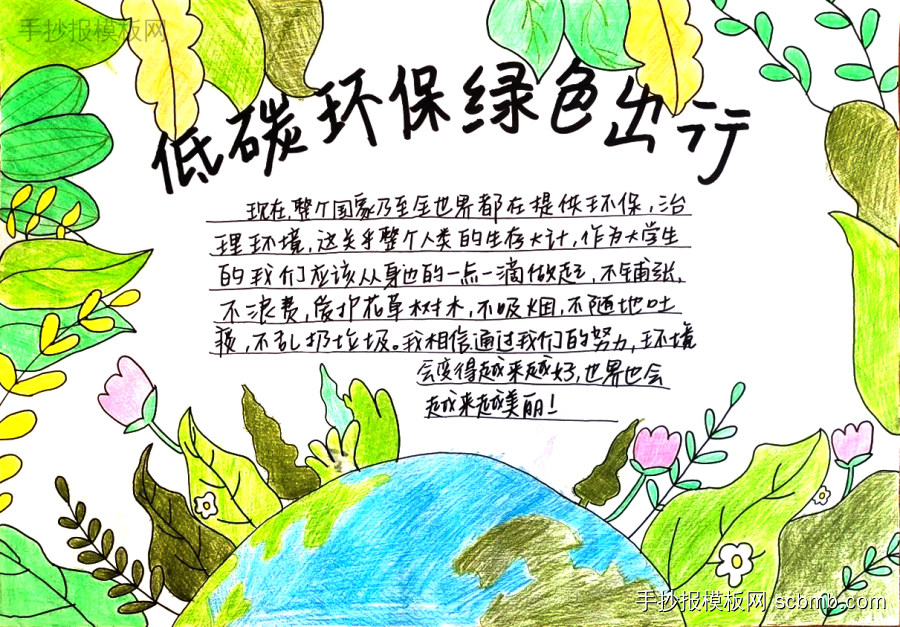 手抄报模板网
低碳环保绿色出行
现在,整个国家乃至全世界都在提供环保,治
理环境,这关乎整个人类的生存大计,作为大学生
的我们应该从身边的一点一滴做起,不铺张,
不浪费,爱护花草树木,不吸烟,不随地吐
痰,不乱扔垃圾。我相信通过我们的努力,环境
会变得越来越好,世界也会
越来越美丽!
手抄报模板网 scbmb.com